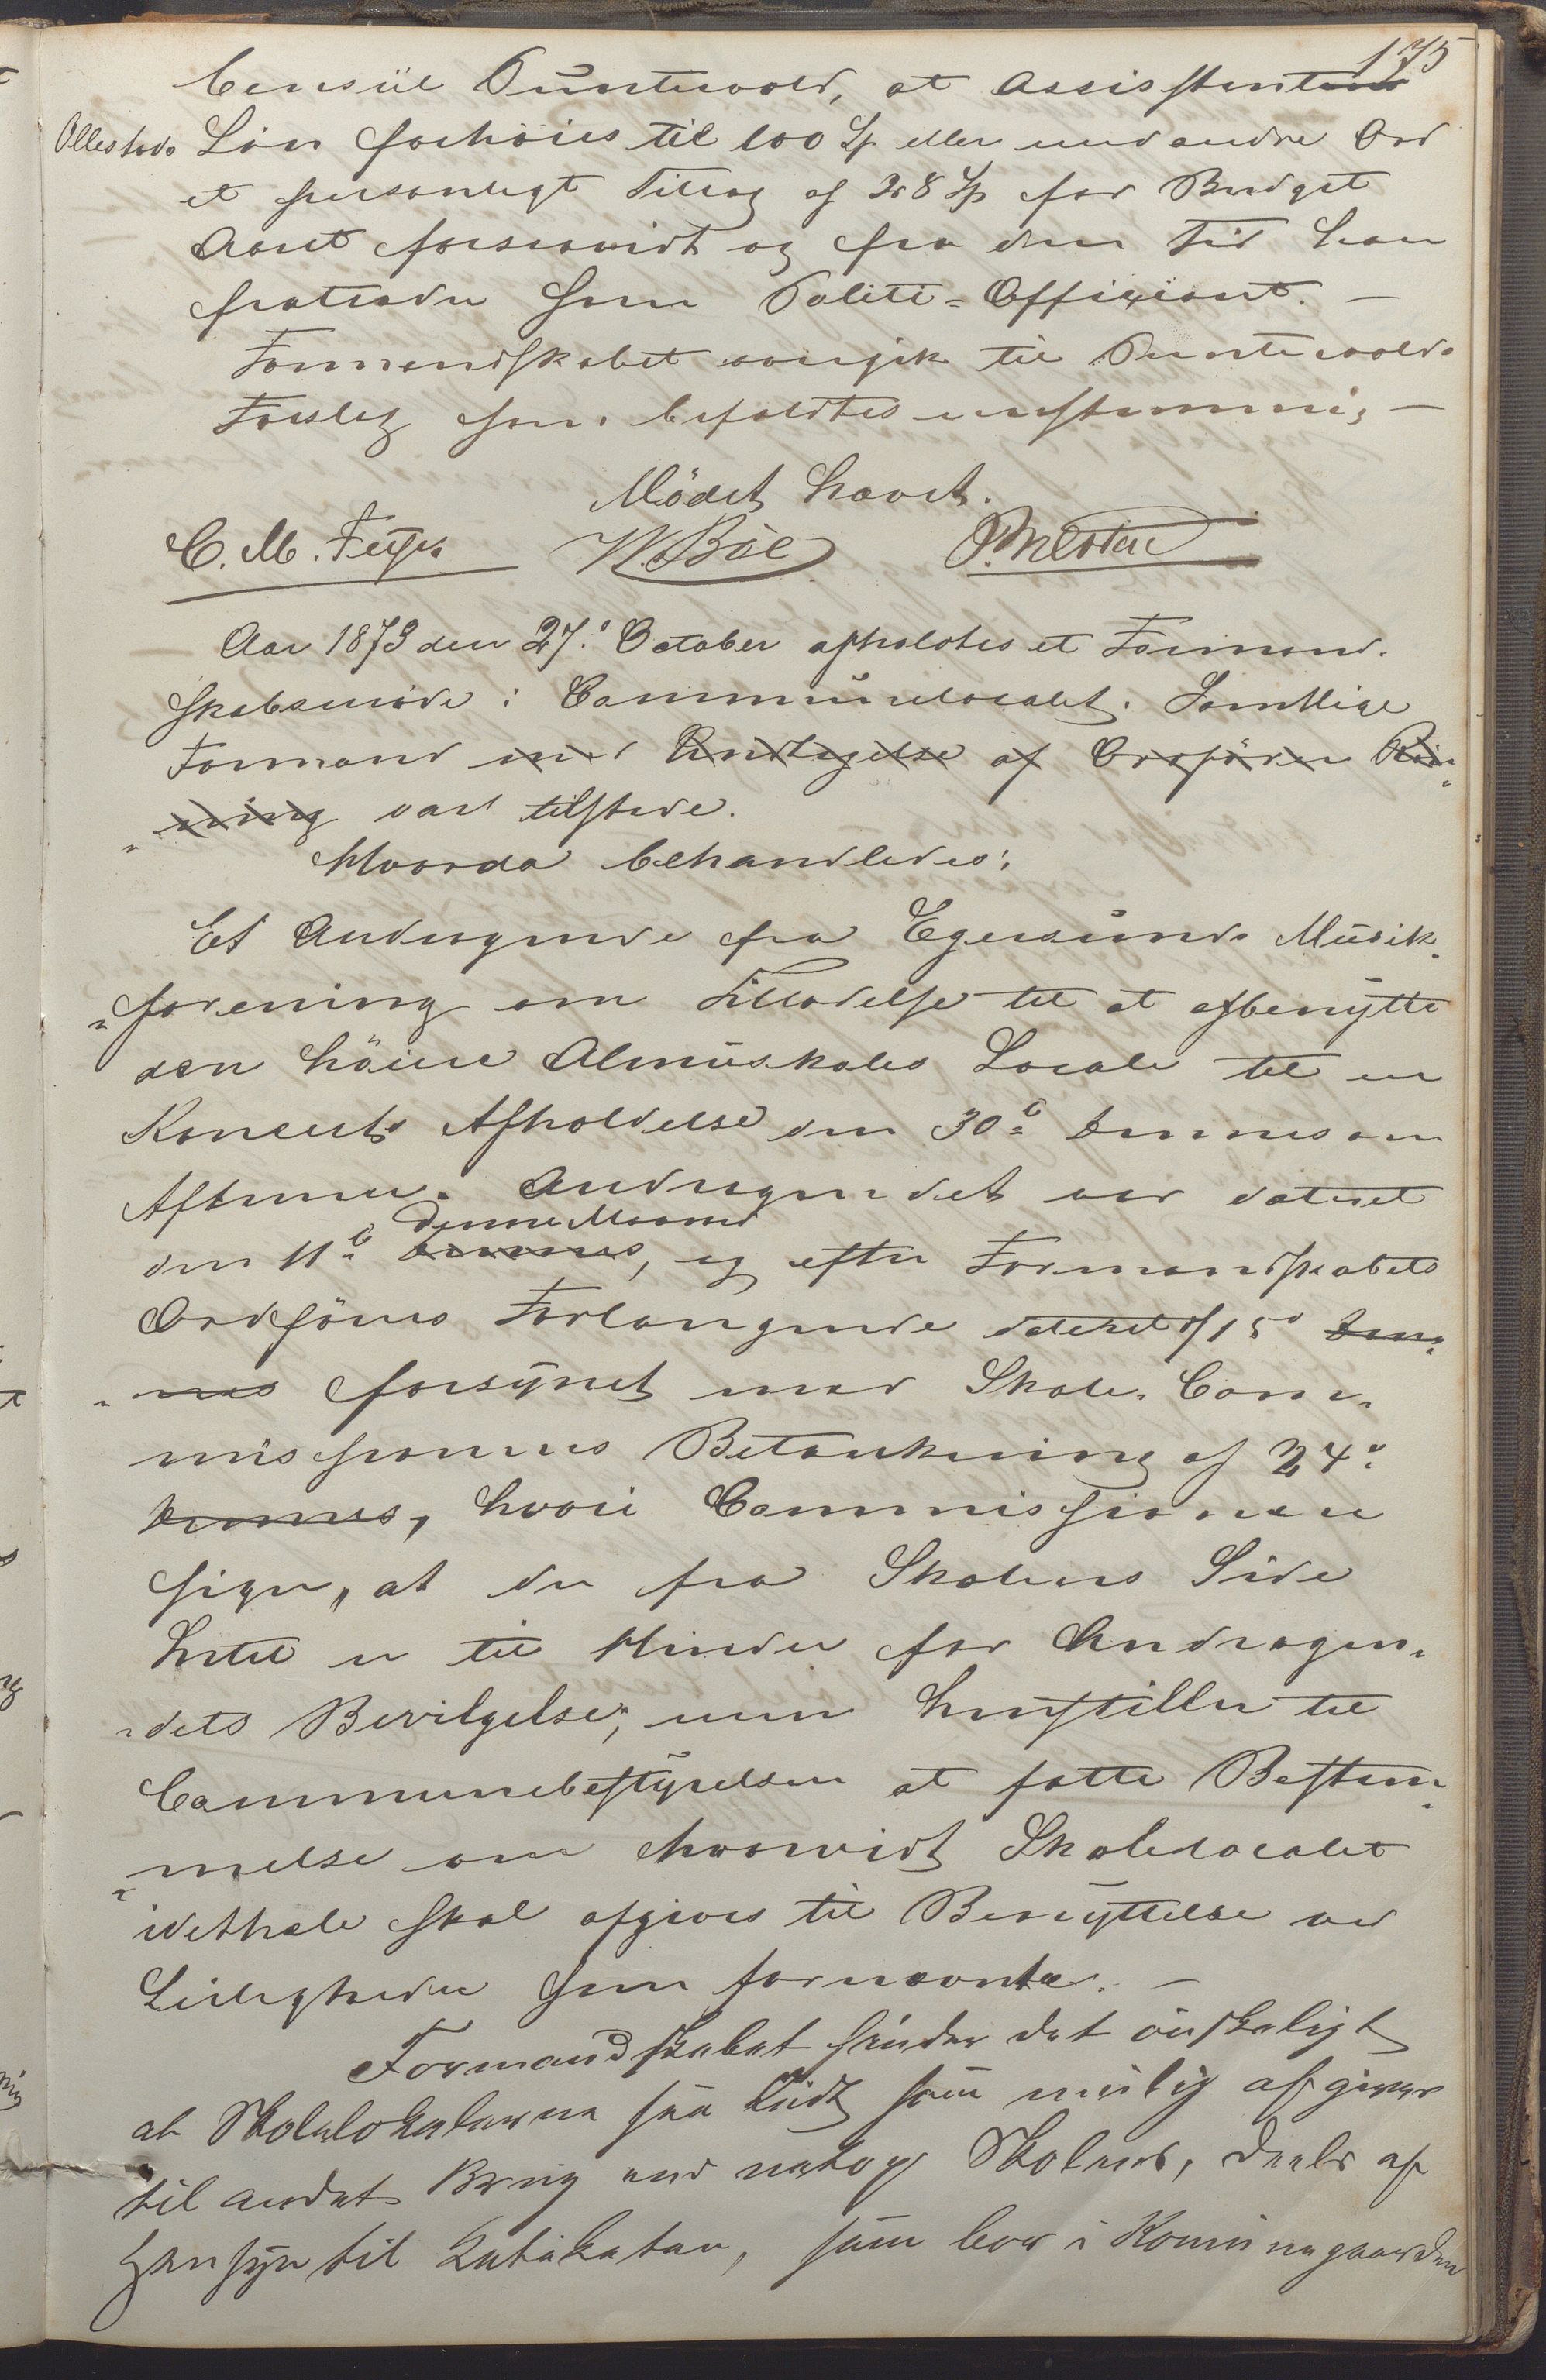 175
Consul Puntervold, at Assisstentens
Ollestads Løn forhöies til 100 Sp eller med andre Ord
et personligt Tillæg af 28 Sp for Budget
Aaret forsaavidt og fra den Tid han
fratræder som Politi-Officiant. —
Formandskabet overgik til Puntervolds
Forslag som bifaldtes enstemmig —
Mödet hævet.
C. M. Feyer W. Böe
Aar 1873 den 27. October afholdtes et Formand-
skabsmöde i Communelocalet. Samtlige
Formænd med Undtagelse af Ordförer Rön-
"ning vare tilstede.
Hvorda behandledes:
Et Andragende fra Egersunds Musik-
"forening om Tilladelse til at afbenytte
den höiere Almuskoles Locale til en
Koncerts Afholdelse den 30te dennes om
Aftenen. Andragendet var dateret
denne Maaned
den 11te dennes, og efter Formandskabets
Ordförers Forlangende dateret 15 den-
"nes forsynet med Skole-Com-
missionens Betænkning af 24.
dennes, hvori Commissionen
siger, "at der fra Skolens Side
Intet er til Hinder for Andragen-
"dets Bevilgelse", men henstiller til
Communebestyrelsen at fatte Bestem-
"melse om hvorvidt Skolelocalet
idethele skal afgives til Benyttelse ved
Leiligheder som fornævnte. —
Formandskabet finder det önskeligt
at Skolelokalerne saa lidt som mulig afgives
til andet Brug end netop Skolens, deels af
Hensyn til Kateketen, som bor i Kommunegaarden